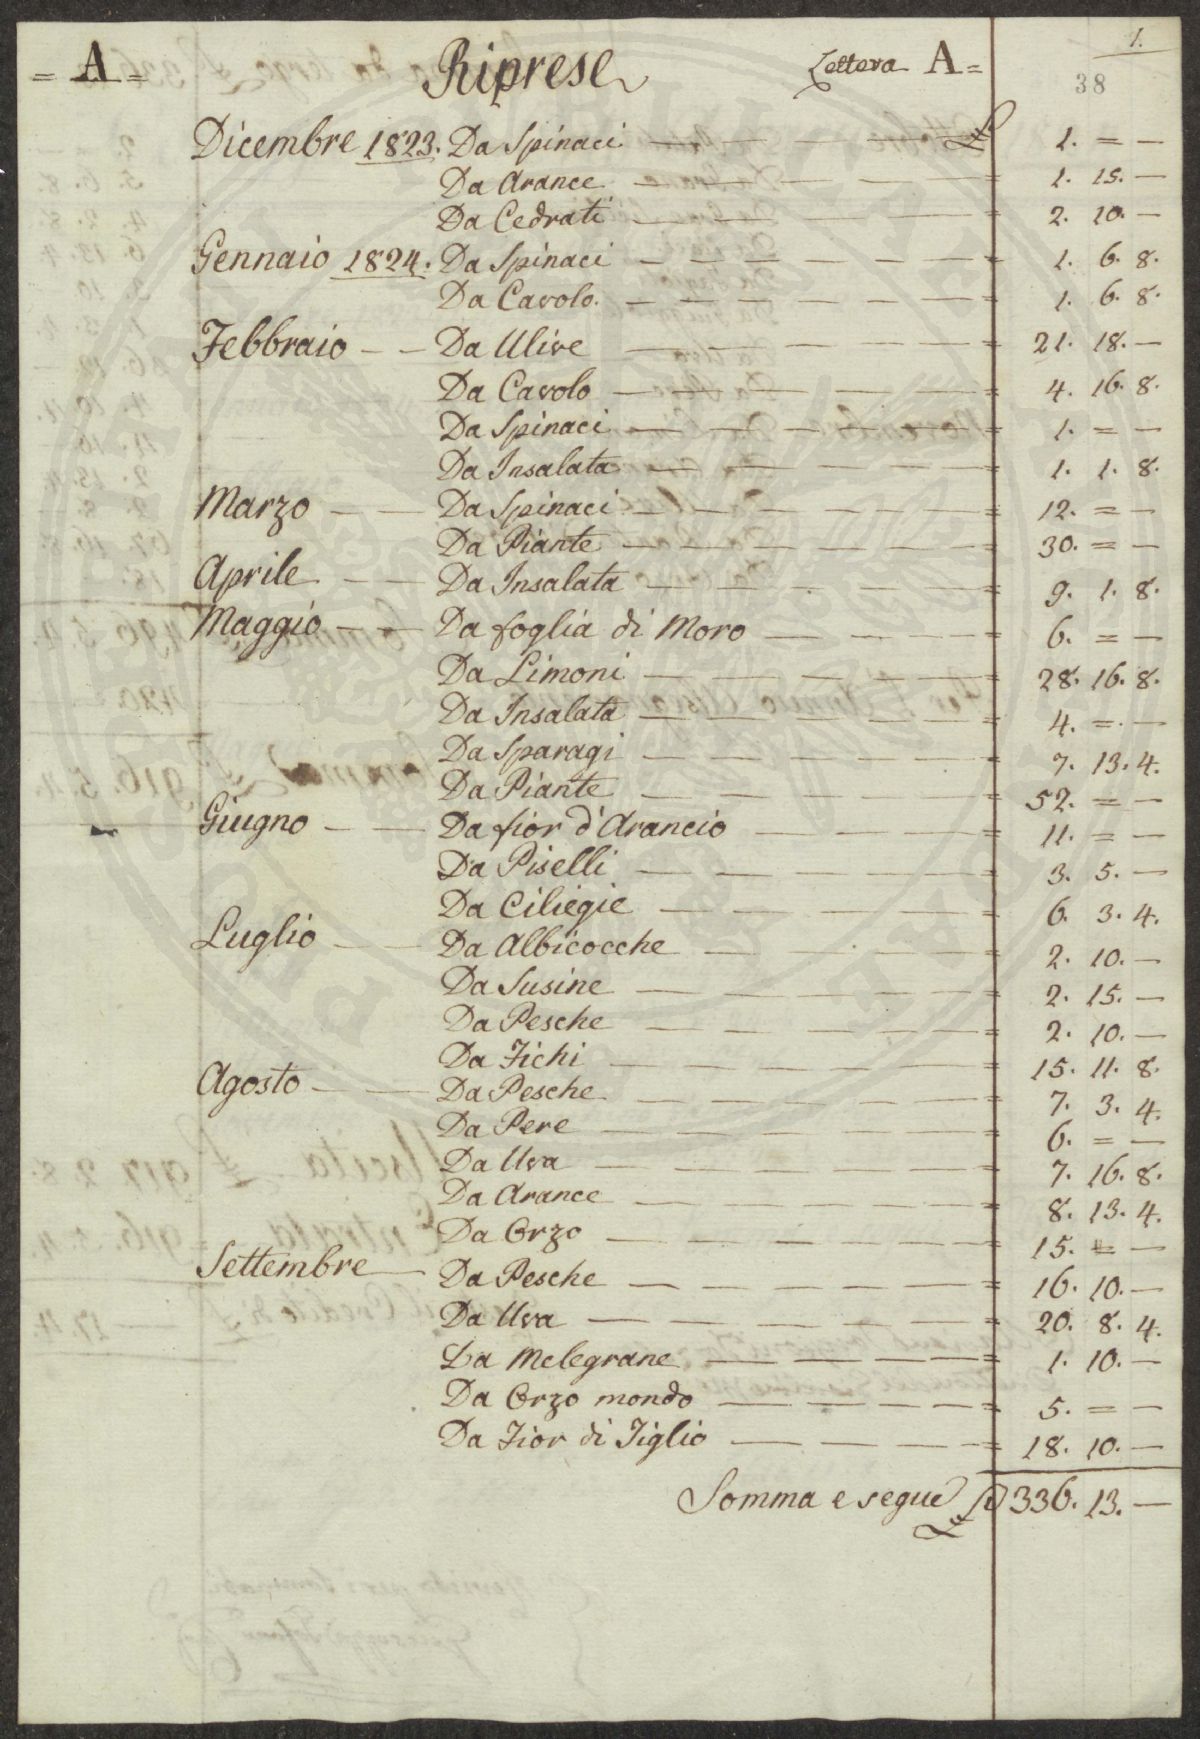 = A = Riprese Lettera A = 1.
38
Dicembre 1823. Da Spinaci — — — — £ 1. = —
Da Arance — — — — = 1. 15. —
Da Cedrati — — — — = 2. 10. —
Gennaio 1824. Da Spinaci — — — — = 1. 6. 8.
Da Cavolo. — — — — = 1. 6. 8.
Febbraio — — Da Ulive — — — — = 21. 18. —
Da Cavolo — — — — = 4. 16. 8.
Da Spinaci — — — — = 1. = —
Da Insalata — — — — = 1. 1. 8.
Marzo — — Da Spinaci — — — — = 12. = —
Da Piante — — — — = 30. = —
Aprile — — Da Insalata — — — — = 9. 1. 8.
Maggio — — Da foglia di Moro — — — = 6. = —
Da Limoni — — — — = 28. 16. 8.
Da Insalata — — — — = 4. =. —
Da Sparagi — — — — = 7. 13. 4.
Da Piante — — — — = 52. = —
Giugno — — Da fior d'Arancio — — — = 11. = —
Da Piselli — — — — = 3. 5. —
Da Ciliegie — — — — = 6. 3. 4.
Luglio — — Da Albicocche — — — = 2. 10. —
Da Susine — — — — = 2. 15. —
Da Pesche — — — — = 2. 10. —
Da Fichi — — — — = 15. 11. 8.
Agosto — — Da Pesche — — — — = 7. 3. 4.
Da Pere — — — — = 6. = —
Da Uva — — — — = 7. 16. 8.
Da Arance — — — — = 8. 13. 4.
Da Orzo — — — — = 15. = —
Settembre — Da Pesche — — — — = 16. 10. —
Da Uva — — — — = 20. 8. 4.
Da Melegrane — — — — = 1. 10. —
Da Orzo mondo — — — — = 5. = —
Da Fior di Tiglio — — — — = 18. 10. —
Somma e segue £ 336. 13. —